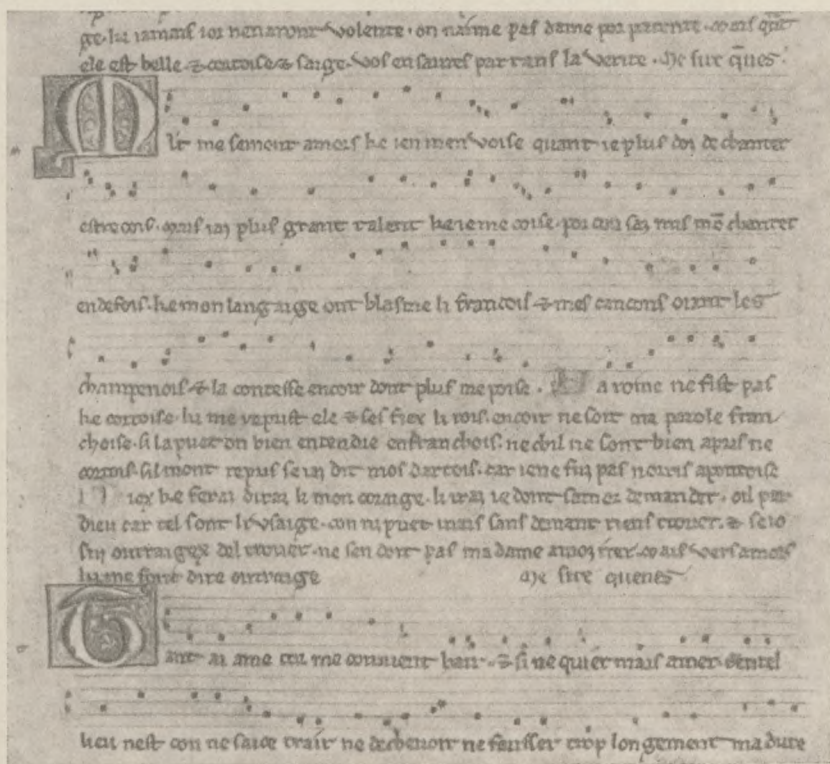 ge. ki iamais ior nen aront volente. on naime pas dame por parente. mais q̄nt
ele est belle ⁊ cortoise ⁊ saige. vos en saures par tans la verite. Me sire q̄nes.
Mlt me semont amors ke ien men voise quant ie plus doi de chanter
estre cois. mais iai plus grant talent ke ie me coise. por cou sai mis mō chanter
en defois. ke mon langaige ont blasme li francois ⁊ mes cancons oiant les
champenois ⁊ la contesse encoir dont plus me poise. La roine ne fist pas
ke cortoise. ki me reprist ele ⁊ ses fiex li rois. encoir ne soit ma parole fran
choise. si la puet on bien entendre en franchois. ne chil ne sont bien apris ne
cortois. sil mont repris se iai dit mos dartois. car ie ne fui pas noris a pontoise
Diex ke ferai dirai li mon coraige. li irai ie dont samor demander. oil par
dieu car tel sont li vsaige. con ni puet mais sans demant riens trover. ⁊ se io
sui outraigex del trover. ne sen doit pas ma dame a moi irer. mais vers amors
ki me font dire outraige Me sire quenes
Tant ai ame con me convient hair. ⁊ si ne quier mais amer. sen tel
lieu nest con ne saice trair ne dechevoir ne fausser trop longement ma dure